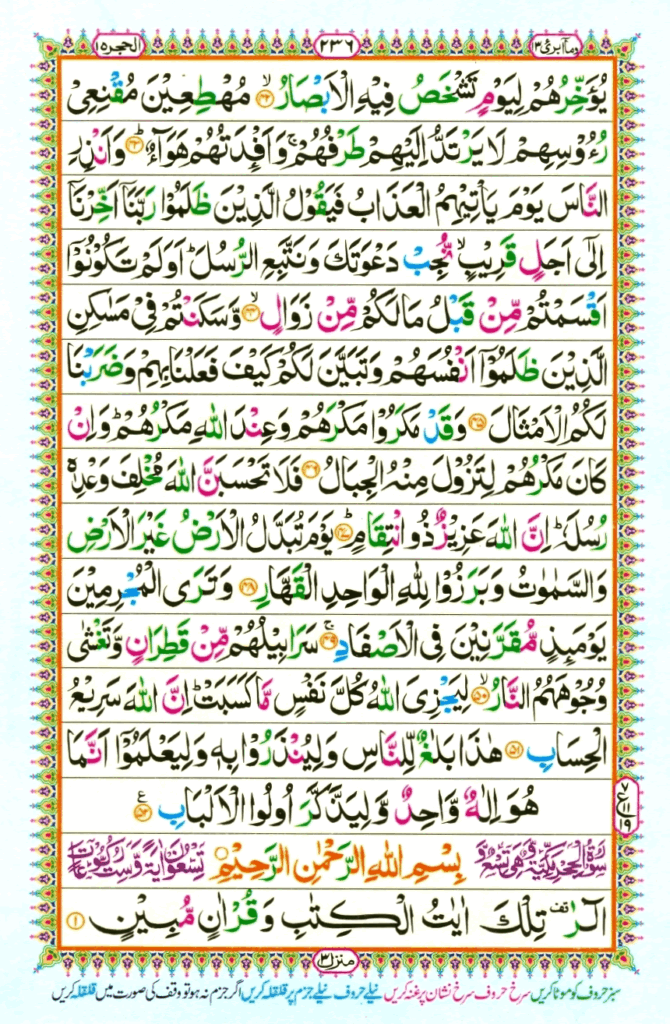 وما ابرئ ۱۳
۲۳۶
الحجر ۱۵
يُؤَخِّرُهُمْ لِيَوْمٍ تَشْخَصُ فِيْهِ الْاَبْصَارُۙ‏ ﴿۴۲﴾ مُهْطِعِيْنَ مُقْنِعِىْ
رُءُوْسِهِمْ لَا يَرْتَدُّ اِلَيْهِمْ طَرْفُهُمْ‌ۚ وَاَفْـِٕدَتُهُمْ هَوَآءٌؕ‏ ﴿۴۳﴾ وَاَنْذِرِ
النَّاسَ يَوْمَ يَاْتِيْهِمُ الْعَذَابُ فَيَقُوْلُ الَّذِيْنَ ظَلَمُوْا رَبَّنَاۤ اَخِّرْنَاۤ
اِلٰٓى اَجَلٍ قَرِيْبٍۙ نُّجِبْ دَعْوَتَكَ وَنَتَّبِعِ الرُّسُلَ‌ؕ اَوَلَمْ تَكُوْنُوْۤا
اَقْسَمْتُمْ مِّنْ قَبْلُ مَا لَكُمْ مِّنْ زَوَالٍۙ‏ ﴿۴۴﴾ وَّسَكَنْتُمْ فِىْ مَسٰكِنِ
الَّذِيْنَ ظَلَمُوْۤا اَنْفُسَهُمْ وَتَبَيَّنَ لَكُمْ كَيْفَ فَعَلْنَا بِهِمْ وَضَرَبْنَا
لَكُمُ الْاَمْثَالَ‏ ﴿۴۵﴾ وَقَدْ مَكَرُوْا مَكْرَهُمْ وَعِنْدَ اللّٰهِ مَكْرُهُمْؕ وَاِنْ
كَانَ مَكْرُهُمْ لِتَزُوْلَ مِنْهُ الْجِبَالُ‏ ﴿۴۶﴾ فَلَا تَحْسَبَنَّ اللّٰهَ مُخْلِفَ وَعْدِهٖ
رُسُلَهٗؕ اِنَّ اللّٰهَ عَزِيْزٌ ذُوْ انْتِقَامٍؕ‏ ﴿۴۷﴾ يَوْمَ تُبَدَّلُ الْاَرْضُ غَيْرَ الْاَرْضِ
وَالسَّمٰوٰتُ وَبَرَزُوْا لِلّٰهِ الْوَاحِدِ الْقَهَّارِ‏ ﴿۴۸﴾ وَتَرَى الْمُجْرِمِيْنَ
يَوْمَٮِٕذٍ مُّقَرَّنِيْنَ فِى الْاَصْفَادِ‌ۚ‏ ﴿۴۹﴾ سَرَابِيْلُهُمْ مِّنْ قَطِرَانٍ وَّتَغْشٰى
وُجُوْهَهُمُ النَّارُۙ‏ ﴿۵۰﴾ لِيَجْزِىَ اللّٰهُ كُلَّ نَفْسٍ مَّا كَسَبَتْ‌ؕ اِنَّ اللّٰهَ سَرِيْعُ
الْحِسَابِ‏ ﴿۵۱﴾ هٰذَا بَلٰغٌ لِّلنَّاسِ وَلِيُنْذَرُوْا بِهٖ وَلِيَعْلَمُوْۤا اَنَّمَا
هُوَ اِلٰـهٌ وَّاحِدٌ وَّلِيَذَّكَّرَ اُولُوا الْاَلْبَابِ‏ ﴿۵۲﴾ ع
۷
ع ۱۱
۱۹
بِسْمِ اللّٰهِ الرَّحْمٰنِ الرَّحِيْمِ
الۤرٰ تِلْكَ اٰيٰتُ الْكِتٰبِ وَقُرْاٰنٍ مُّبِيْنٍ‏ ﴿۱﴾
منزل ۳
سبز حروف کو موٹا کریں سرخ حروف سرخ نشان پر غنہ کریں نیلے حروف نیلے جزم پر قلقلہ کریں اگر جزم نہ ہو تو وقف کی صورت میں قلقلہ کریں